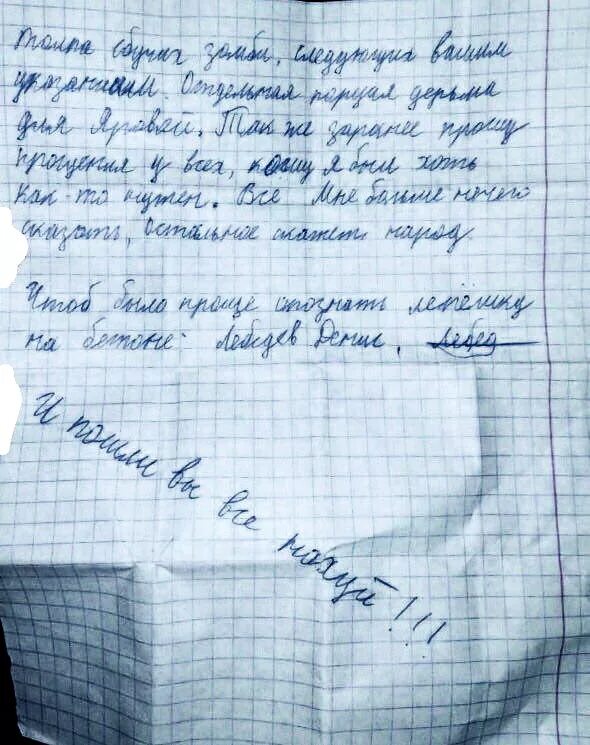 толпа сбучих зомби, следующих вашим
указаниям. Отдельная порция дерьма
для Яровой. Так же заранее прошу
прощения у всех, кому я был хоть
как-то нужен. Все Мне больше нечего
сказать, Остальное скажет народ.
Чтоб было проще опознать лепёшку
на бетоне: Лебедев Денис. Лебед
И пошли вы все нахуй!!!